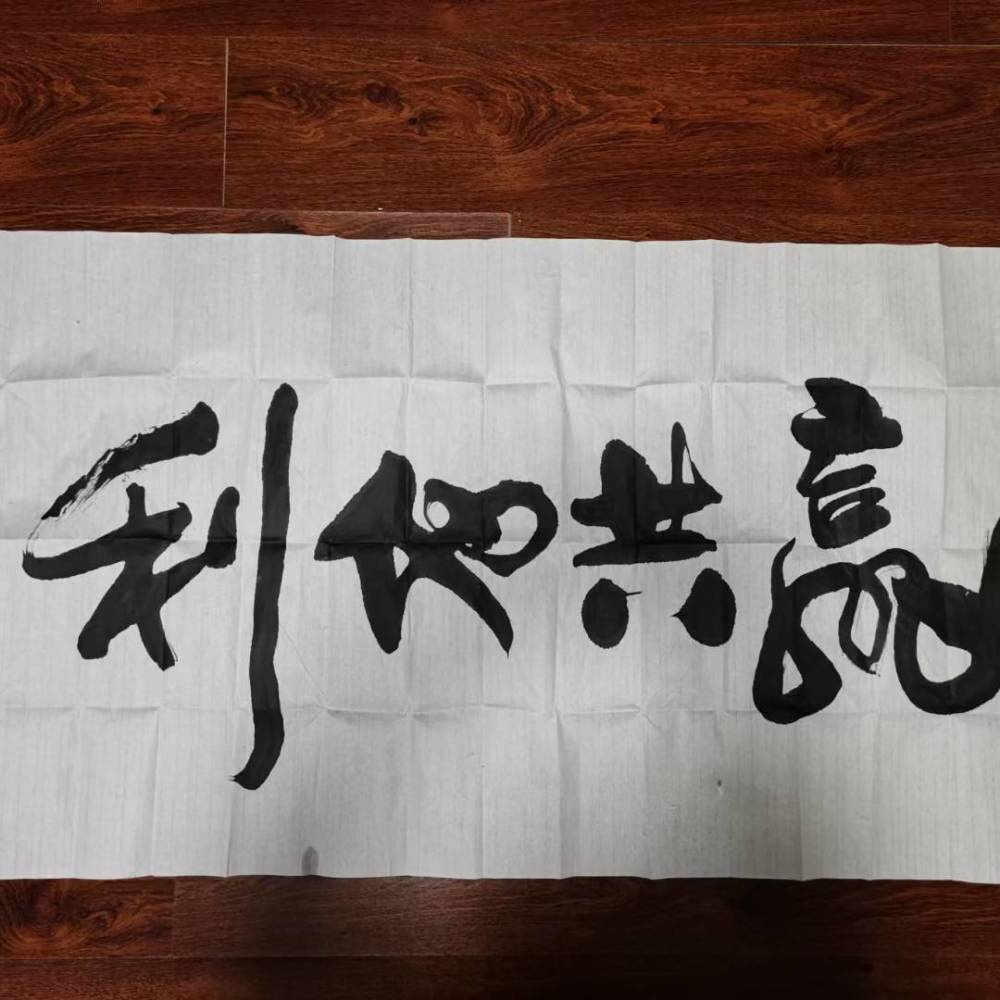 利他共赢